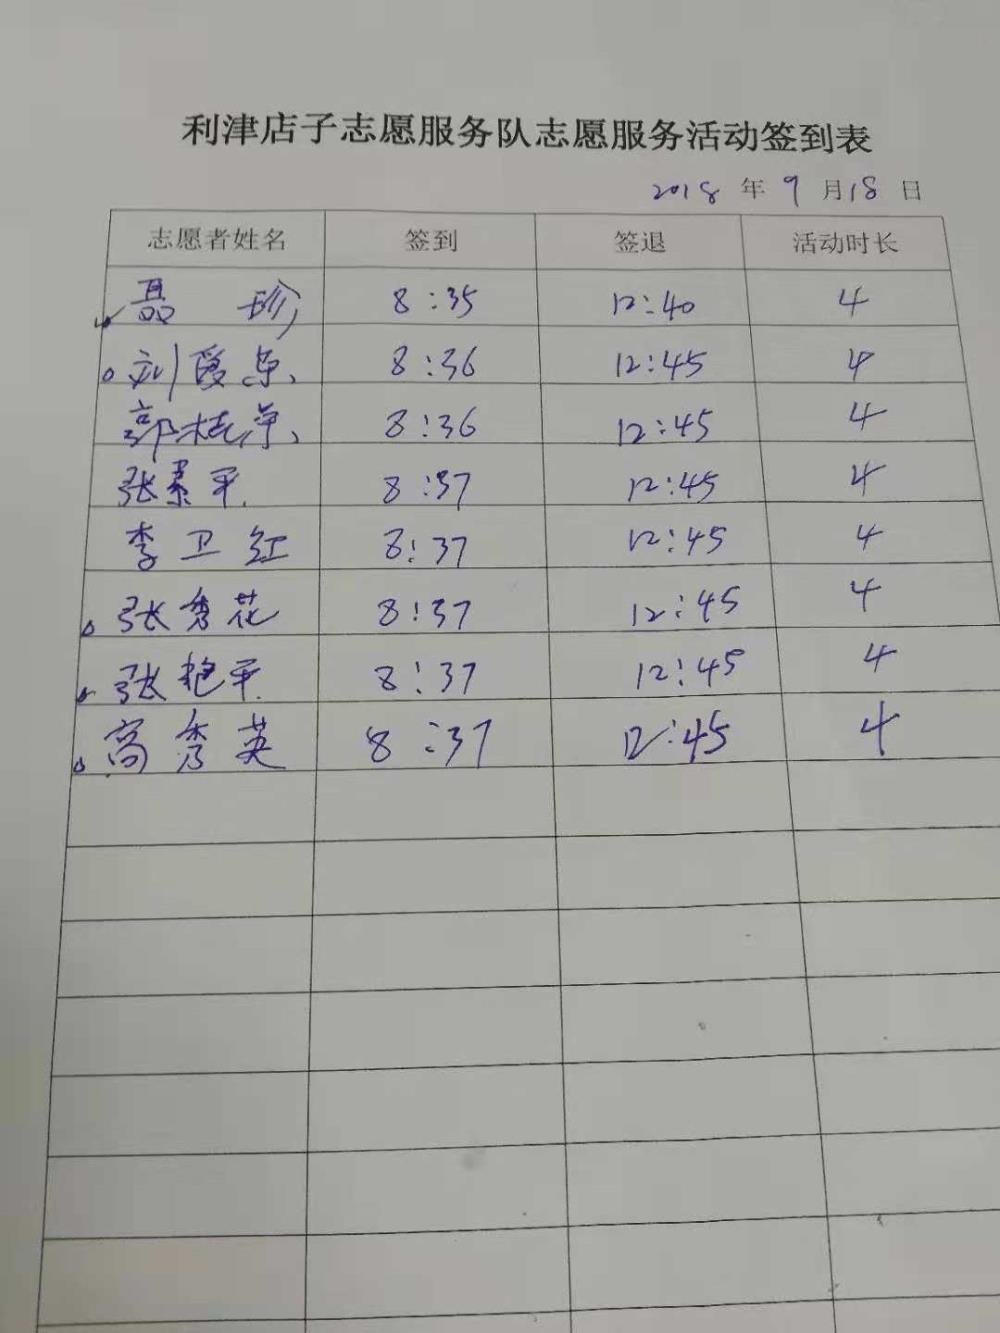 利津店子志愿服务队志愿服务活动签到表
2018 年 9 月 18 日
志愿者姓名 签到 签退 活动时长
聂 珍 8:35 12:40 4
刘爱景 8:36 12:45 4
郭桂萍 8:36 12:45 4
张素平 8:37 12:45 4
李卫红 8:37 12:45 4
张秀花 8:37 12:45 4
张艳平 8:37 12:45 4
高秀英 8:37 12:45 4